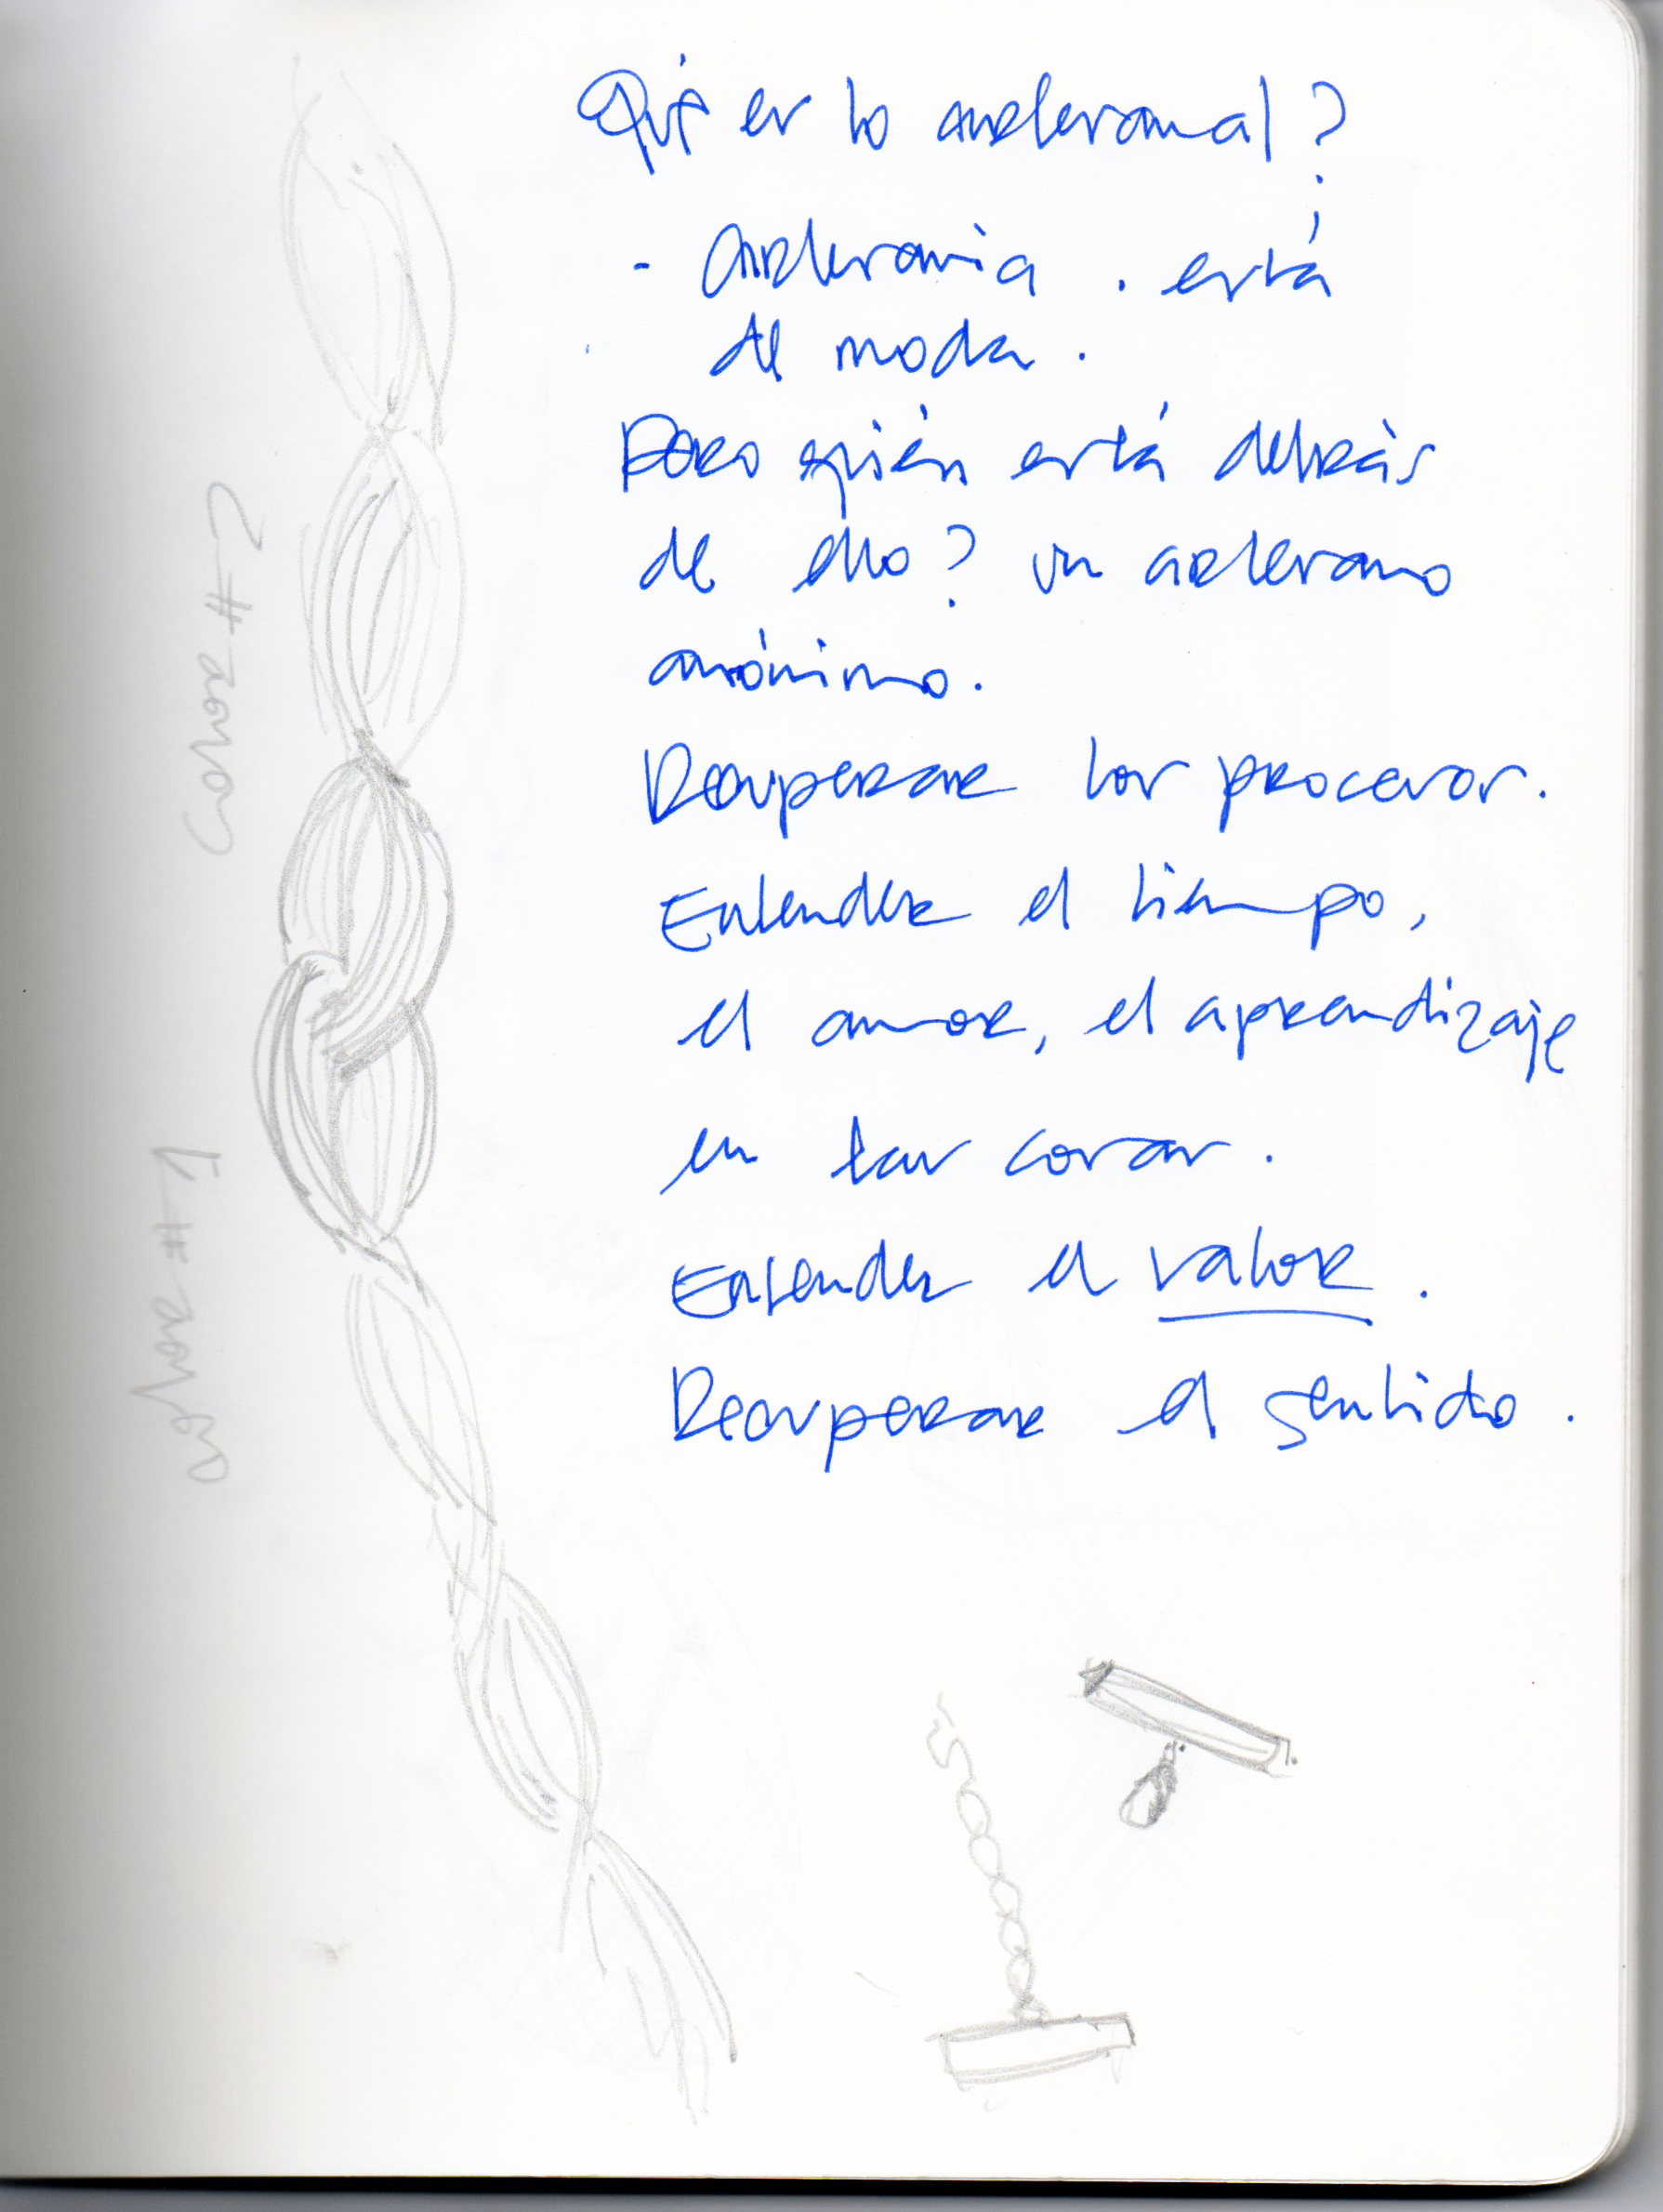 Qué es lo artesanal?
- Artesanía. está
de moda.
Pero quién está detrás
de ello? un artesano
anónimo.
Recuperar los procesos.
Entender el tiempo,
el amor, el aprendizaje
en las cosas.
Entender el valor.
Recuperar el sentido.
Collar #2
Collar #1